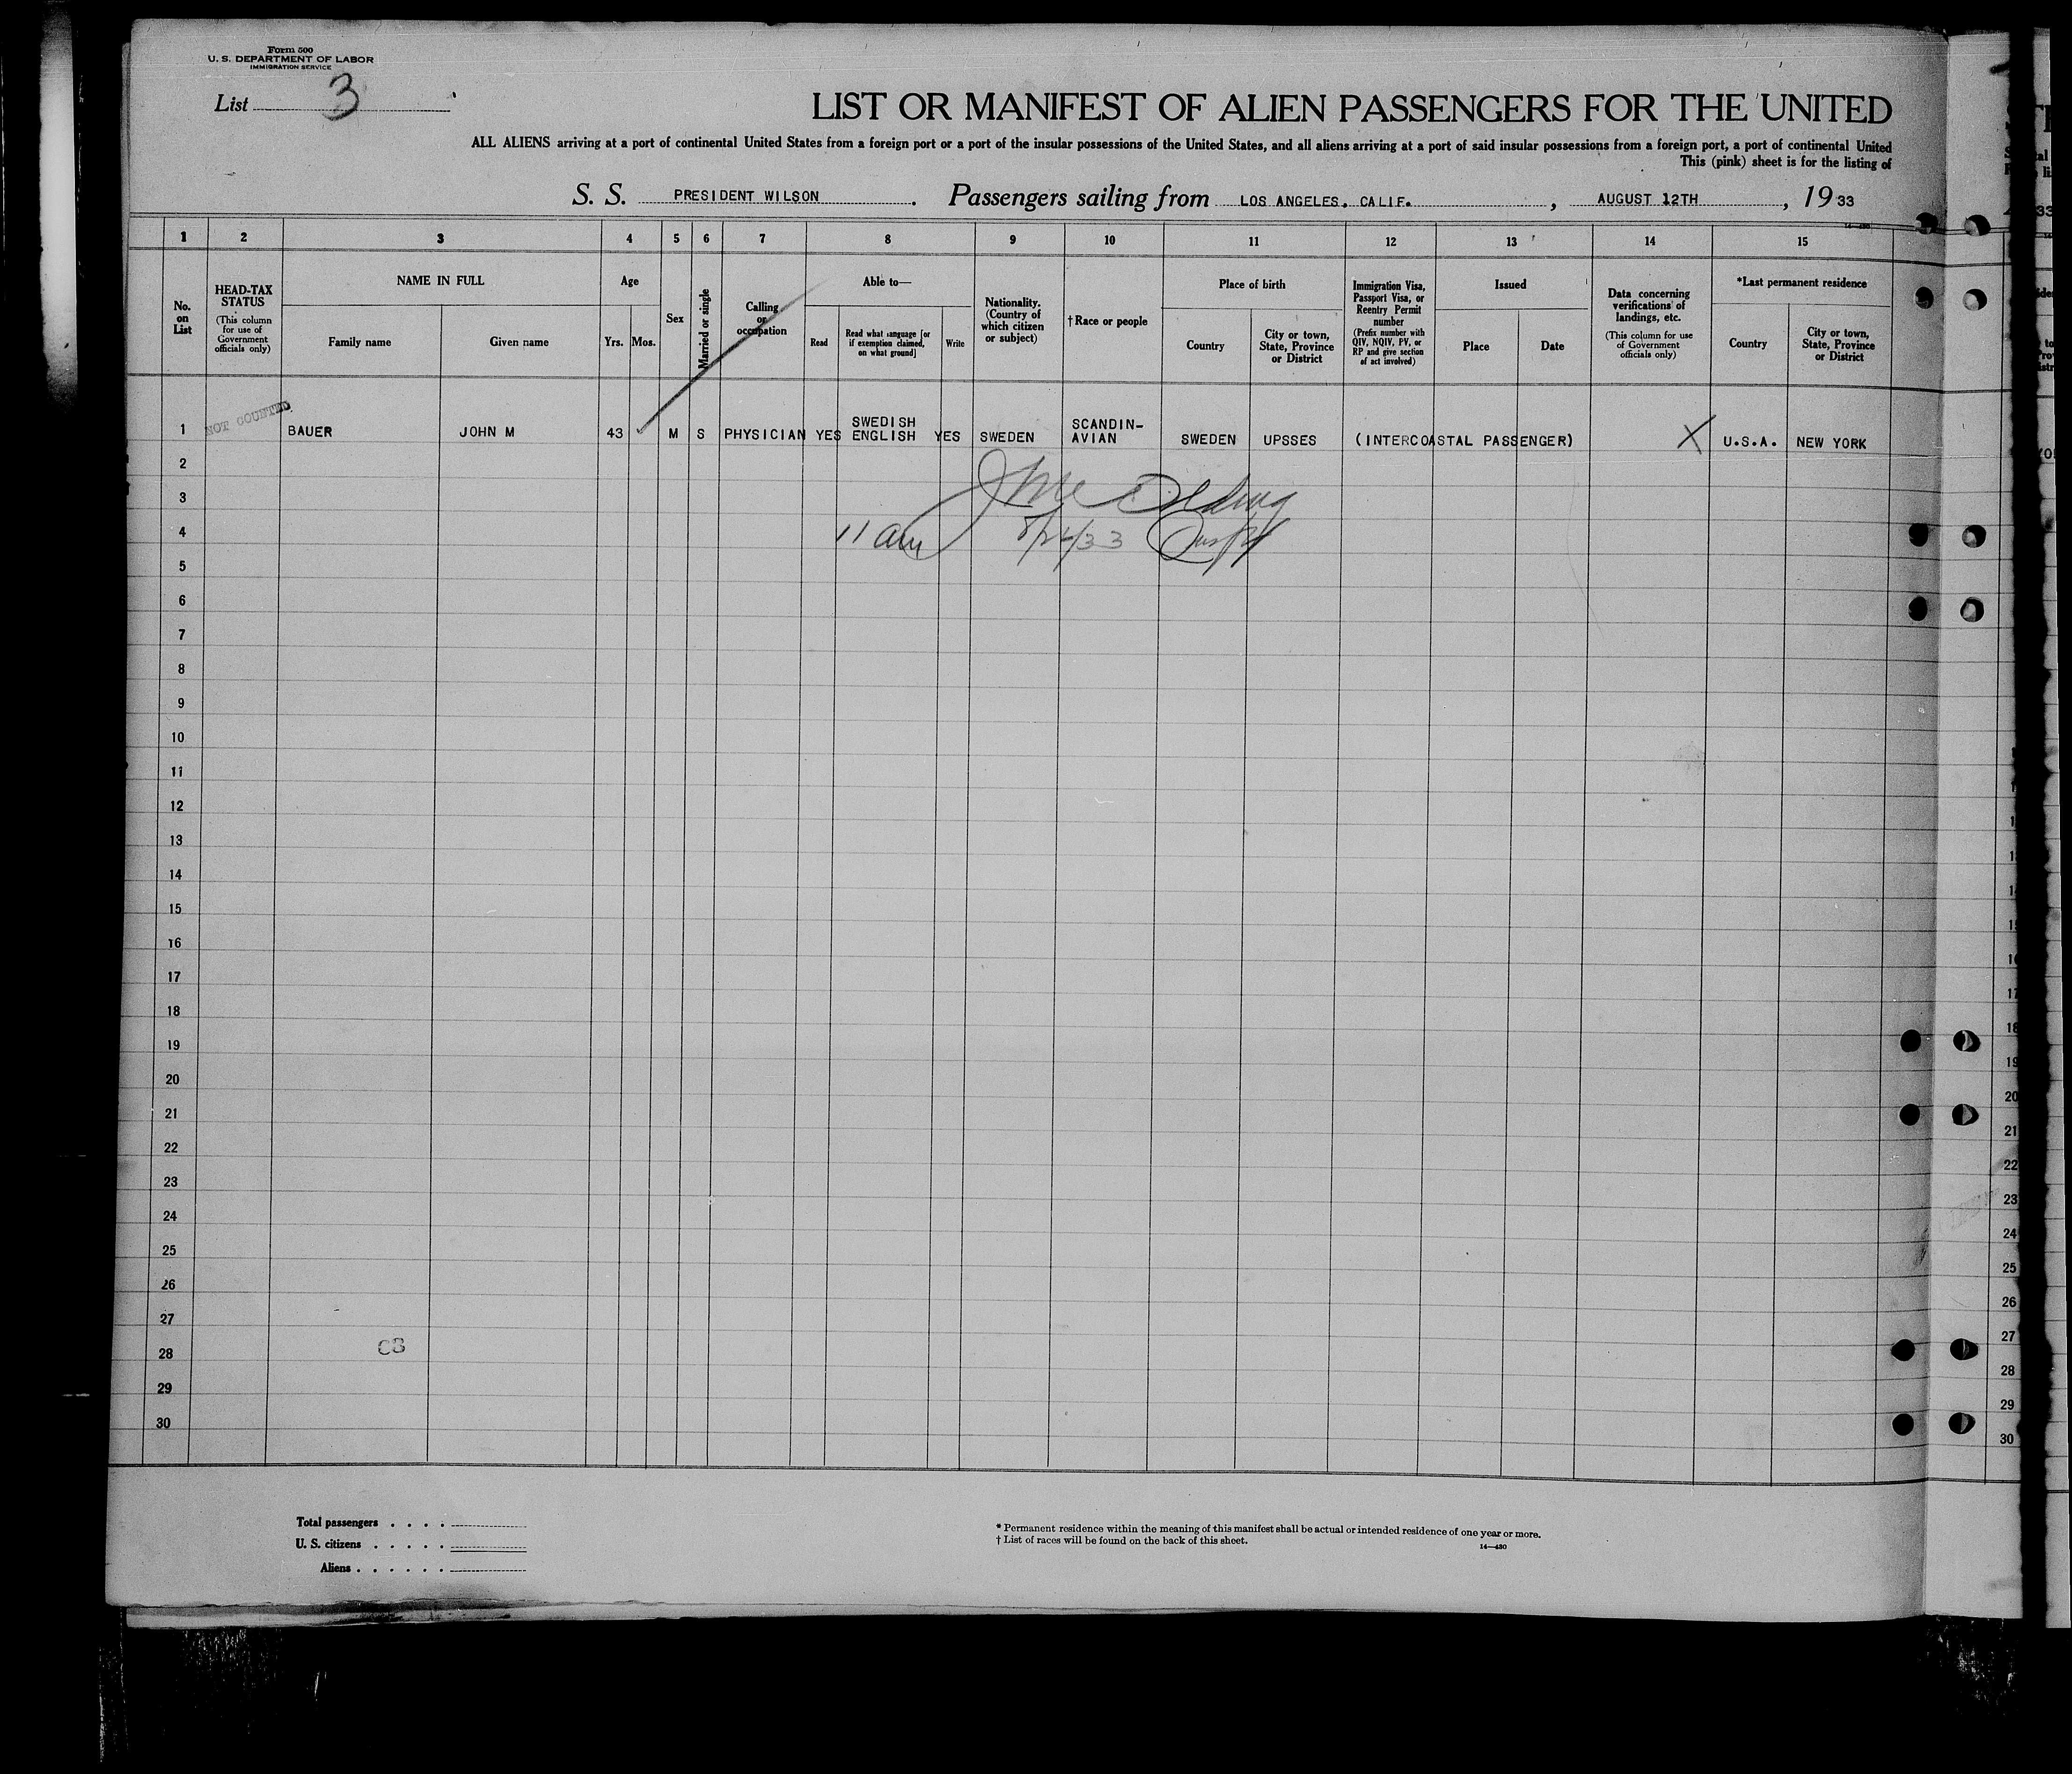 Form 500
U. S. DEPARTMENT OF LABOR
IMMIGRATION SERVICE
List 3
LIST OR MANIFEST OF ALIEN PASSENGERS FOR THE UNITED
ALL ALIENS arriving at a port of continental United States from a foreign port or a port of the insular possessions of the United States, and all aliens arriving at a port of said insular possessions from a foreign port, a port of continental United
This (pink) sheet is for the listing of
S. S. PRESIDENT WILSON. Passengers sailing from LOS ANGELES. CALIF., AUGUST 12TH, 19 33
14—430
1 2 3 4 5 6 7 8 9 10 11 12 13 14 15
No. on List
HEAD-TAX STATUS (This column for use of Government officials only)
NAME IN FULL
Family name
Given name
Age
Yrs.
Mos.
Sex
Married or single
Calling or occupation
Able to—
Read
Read what language [or if exemption claimed, on what ground]
Write
Nationality. (Country of which citizen or subject)
†Race or people
Place of birth
Country
City or town, State, Province or District
Immigration Visa, Passport Visa, or Reentry Permit number (Prefix number with QIV, NQIV, PV, or RP and give section of act involved)
Issued
Place
Date
Data concerning verifications of landings, etc. (This column for use of Government officials only)
*Last permanent residence
Country
City or town, State, Province or District
NOT COUNTED
1 BAUER JOHN M 43 M S PHYSICIAN YES SWEDISH ENGLISH YES SWEDEN SCANDIN-AVIAN SWEDEN UPSSES (INTERCOASTAL PASSENGER) X U.S.A. NEW YORK
2
3
4 11 am
5
6
7
8
9
10
11
12
13
14
15
16
17
18
19
20
21
22
23
24
25
26
27
28
29
30
Total passengers . . . .
U. S. citizens . . . . .
Aliens . . . . . .
* Permanent residence within the meaning of this manifest shall be actual or intended residence of one year or more.
† List of races will be found on the back of this sheet.
14—430